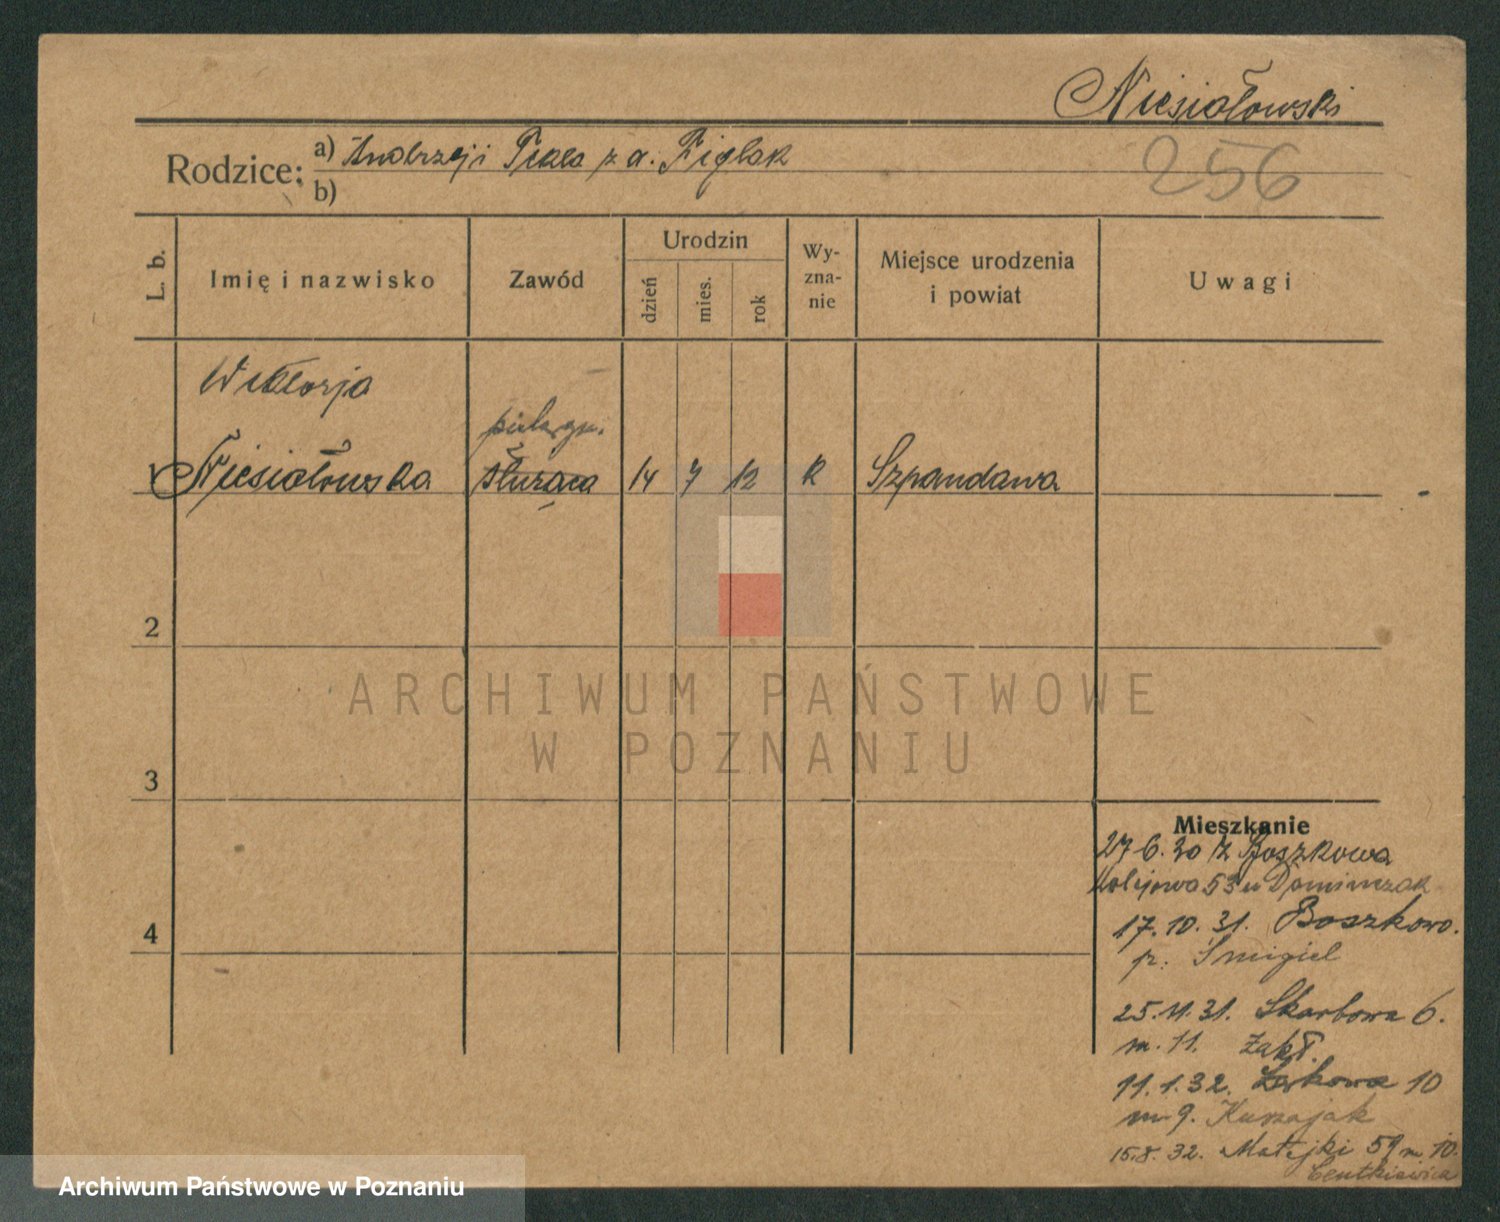 Niesiołowski
Rodzice: a) Andrzej i Tekla z d. Figlak
b)
256
L. b.
Imię i nazwisko
Zawód
Urodzin
dzień
mies.
rok
Wy-
zna-
nie
Miejsce urodzenia
i powiat
Uwagi
Wiktorja
pielęgn.
1 Niesiołowska służąca 14 7 12 k Szpandawa
2
3
4
ARCHIWUM PAŃSTWOWE
W POZNANIU
Mieszkanie
27 6. 30 z Boszkowa
Kolejowa 53 u Dominczak
17. 10. 31. Boszkowo.
p. Śmigiel
25. 11. 31. Skarbowa 6.
m. 11. Zakł.
11. 1. 32. 10
m 9.
15. 8. 32. Matejki 59 m. 10.
Archiwum Państwowe w Poznaniu